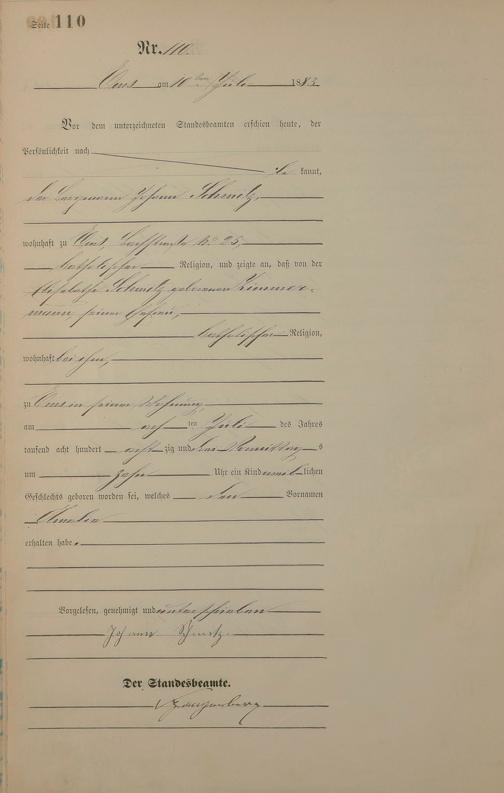 Seite 110
Nr. 110.
Ems am 10ten Juli 1883.
Vor dem unterzeichneten Standesbeamten erschien heute, der
Persönlichkeit nach
be kannt,
der Bergmann Johann Schmitz,
wohnhaft zu Ems, No 25,
katholischer Religion, und zeigte an, daß von der
Schmitz geborenen Zimmer-
mann seiner Ehefrau,
katholischer Religion,
wohnhaft bei ihm,
zu Ems in seiner Wohnung,
am ten Juli des Jahres
tausend acht hundert acht zig und drei Vormittags
um zehn Uhr ein Kind weiblichen
Geschlechts geboren worden sei, welches den Vornamen
Amalia
erhalten habe.
Vorgelesen, genehmigt und unterschrieben
Johann Schmitz
Der Standesbeamte.